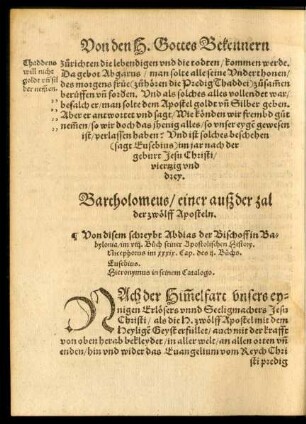 Von den H. Gottes Bekennern
Thaddeus
will nicht
goldt vñ sil
ber nemen.
zůrichten die lebendigen vnd die todten / kommen werde.
Da gebot Abgarus / man solte alle seine Vnderthonen /
des morgens früe / zůhören die Predig Thaddei / zůsamen
berůffen vñ fordern. Vnd als solches alles vollendet war /
befalch er / man solte dem Apostel goldt vñ Silber geben.
Aber er antwortet vnd sagt / Wie könden wir frembd gůt
nemen / so wir doch das jhenig alles / so vnser eygē gewesen
ist / verlassen haben? Vnd ist solches beschehen
(sagt Eusebius) im jar nach der
geburt Jesu Christi /
viertzig vnd
drey.
Bartholomeus / einer auß der zal
der zwölff Aposteln.
¶ Von disem schreybt Abdias der Bischoff in Ba-
bylonia / im viij. Bůch seiner Apostolischen History.
Nicephorus im xxxix. Cap. des ij. Bůchs.
Eusebius.
Hieronymus in seinem Catalogo.
NAch der Himmelfart vnsers ey-
nigen Erlösers vnnd Seeligmachers Jesu
Christi / als die H. zwölff Apostel mit dem
Heyligē Geyst erfüllet / auch mit der krafft
von oben herab bekleydet / in aller welt / an allen orten vñ
enden / hin vnd wider das Euangelium vom Reych Chri
sti predig